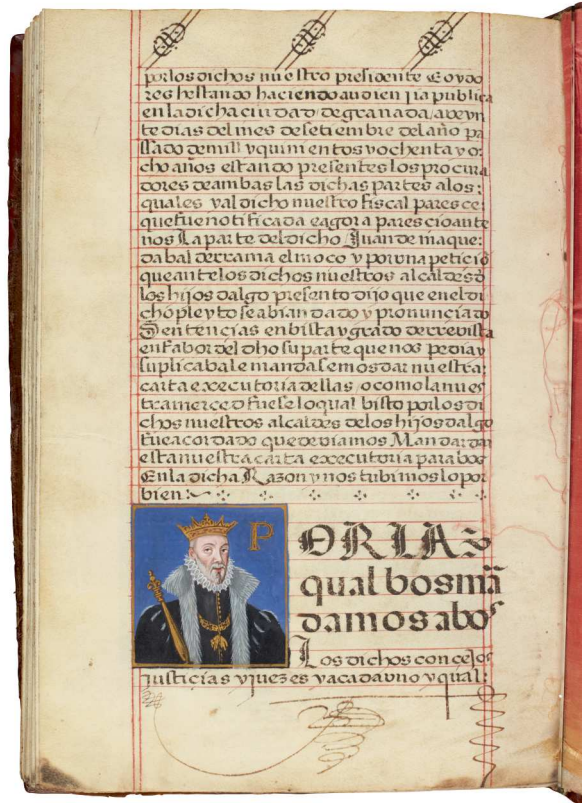 por los dichos nuestro presidente e oydo
res hestando haciendo audiençia publica
en la dicha ciudad de granada a veyn
te dias del mes de setiembre del año pa
ssado de mill y quinientos y ochenta y o:
cho años estando presentes los procura
dores de ambas las dichas partes a los:
quales y al dicho nuestro fiscal paresce:
que fue notificada e agora parescio ante
nos La parte del dicho Juan de maque:
da balderrama el moço y por una petició
que ante los dichos nuestros alcaldes d
los hijos dalgo presento dijo que en el di
cho pleyto se abian dado y pronunciado
Sentencias en bista y grado de rrebista
en fabor del dho su parte que nos pedia y
suplicaba le mandasemos dar nuestra:
carta executoria dellas / o como la nues
tra merced fuese lo qual bisto por los di
chos nuestros alcaldes de los hijos dalgo
fue acordado que debiamos Mandar dar
esta nuestra carta executoria para bos
En la dicha Razon y nos tubimos lo por
bien :~
P ORLA
qual bos mã
damos a bos
Los dichos concejos
justicias y juezes y a cada uno y qual: